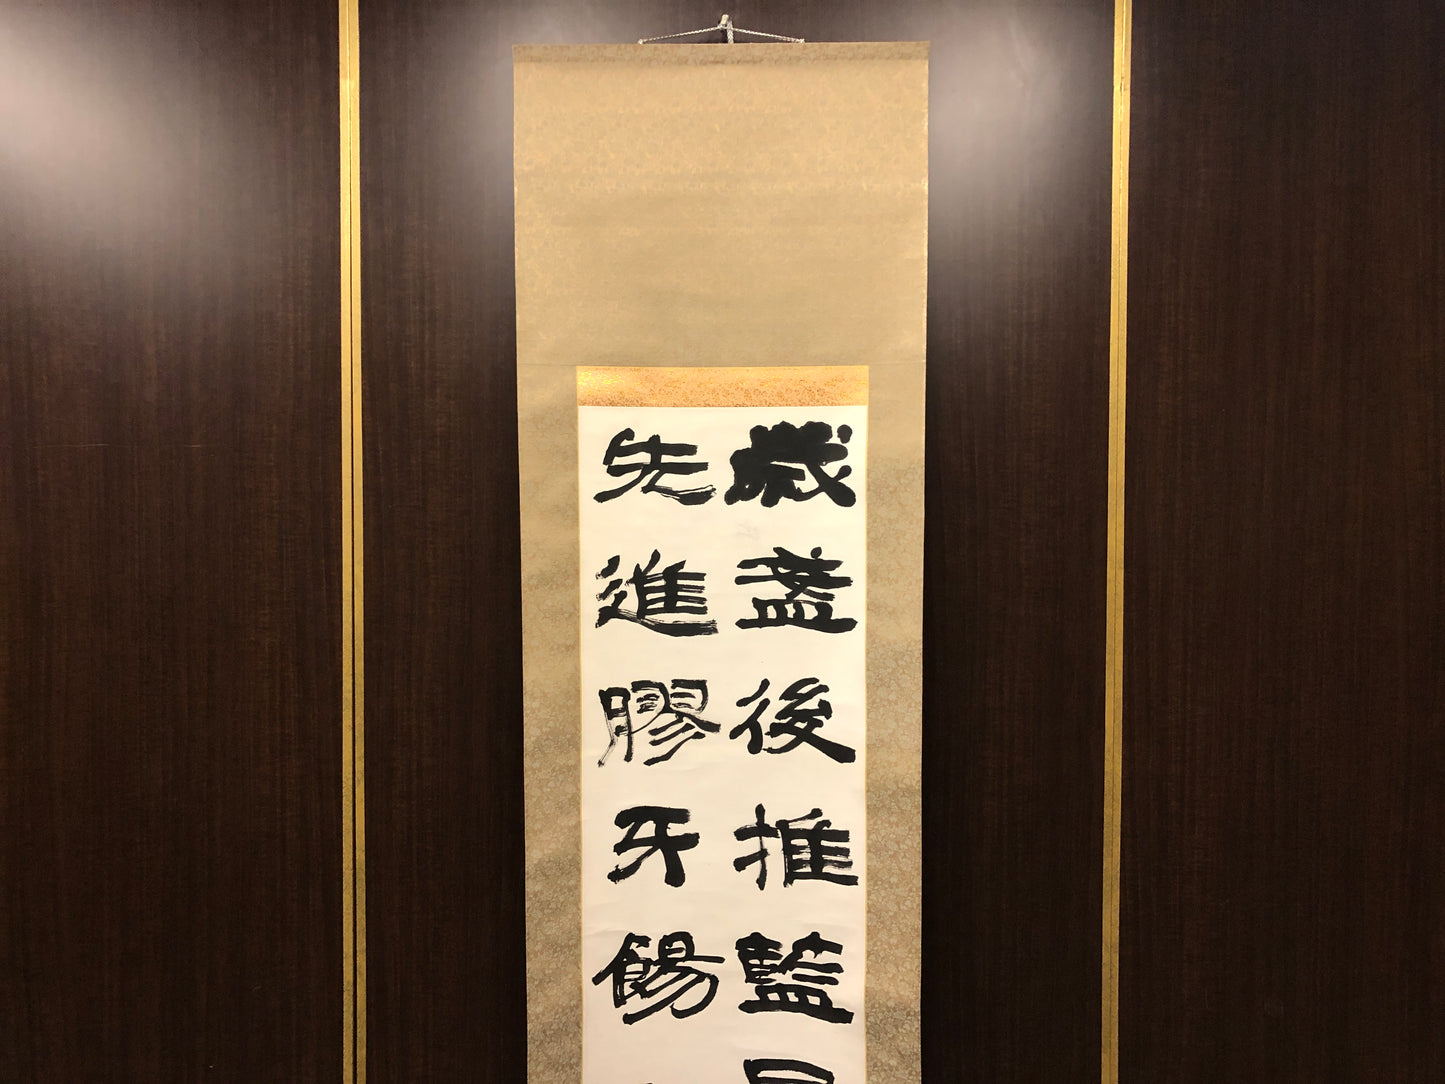 歲盞後推藍
先進膠牙餳